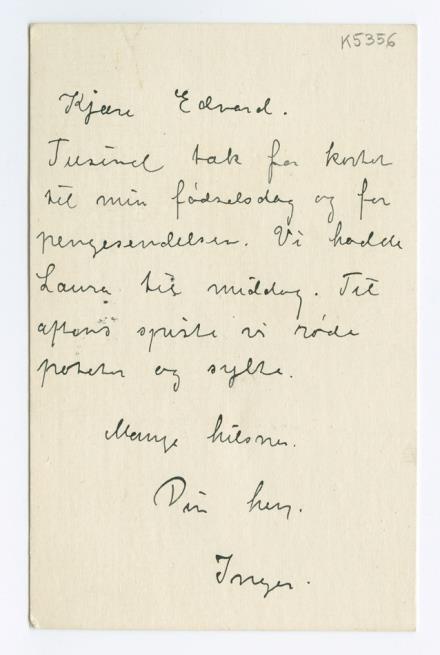 K5356
Kjære Edvard.
Tusind tak for kortet
til min fødselsdag og for
pengesendelsen. Vi hadde
Laura til middag. Til
aftens spiste vi røde
poteter og sylte.
Mange hilsner.
Din heng.
Inger.